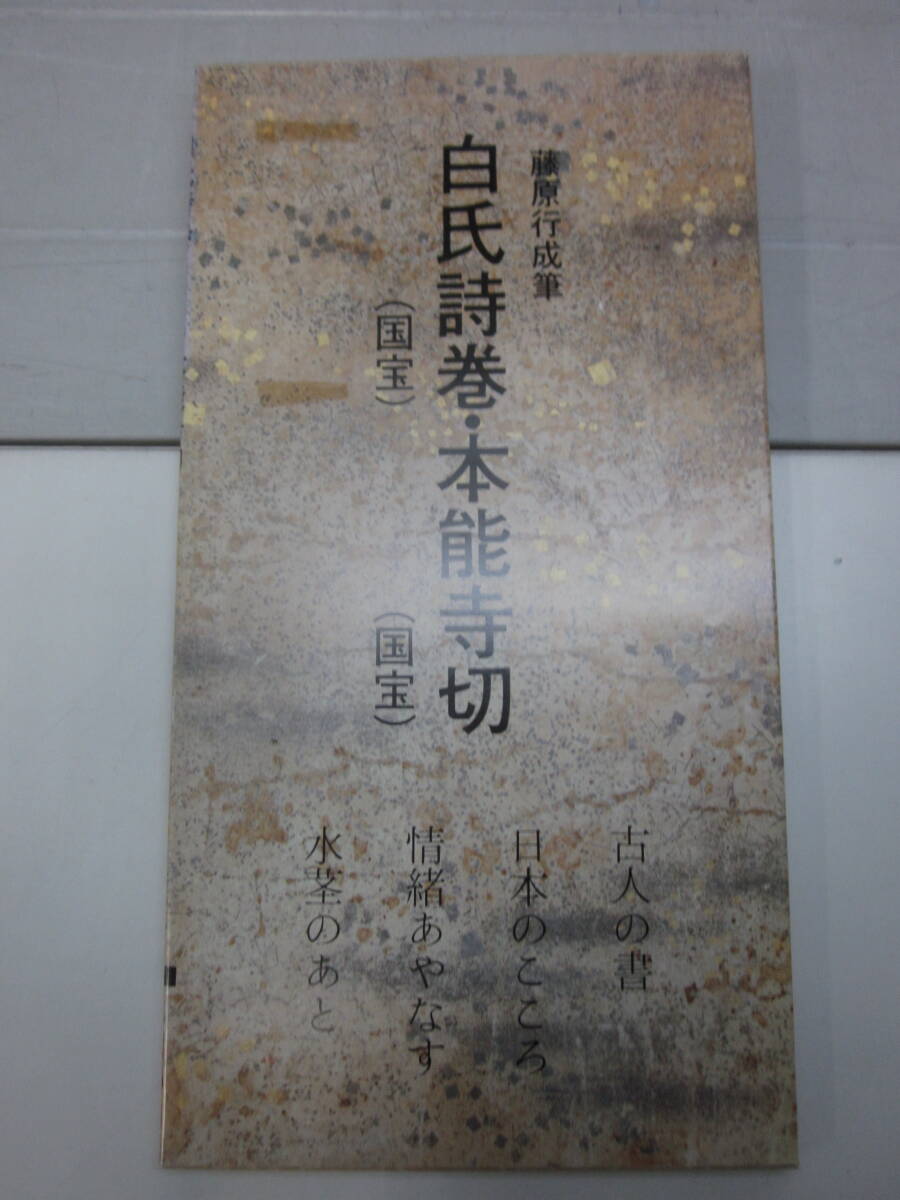 藤原行成筆
白氏詩巻・本能寺切
（国宝）
（国宝）
古人の書
日本のこころ
情緒あやなす
水茎のあと